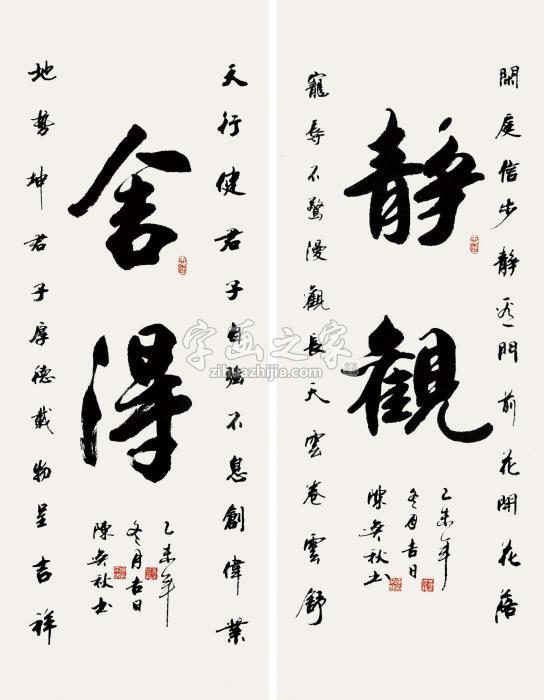 閑庭信步靜看門前花開花落
靜觀
寵辱不驚漫觀長天雲卷雲舒
乙未年
冬月吉日
陳奕秋书
天行健君子自強不息創偉業
舍得
地勢坤君子厚德載物呈吉祥
乙未年
冬月吉日
陳奕秋书
字画之家
zihuazhijia.com